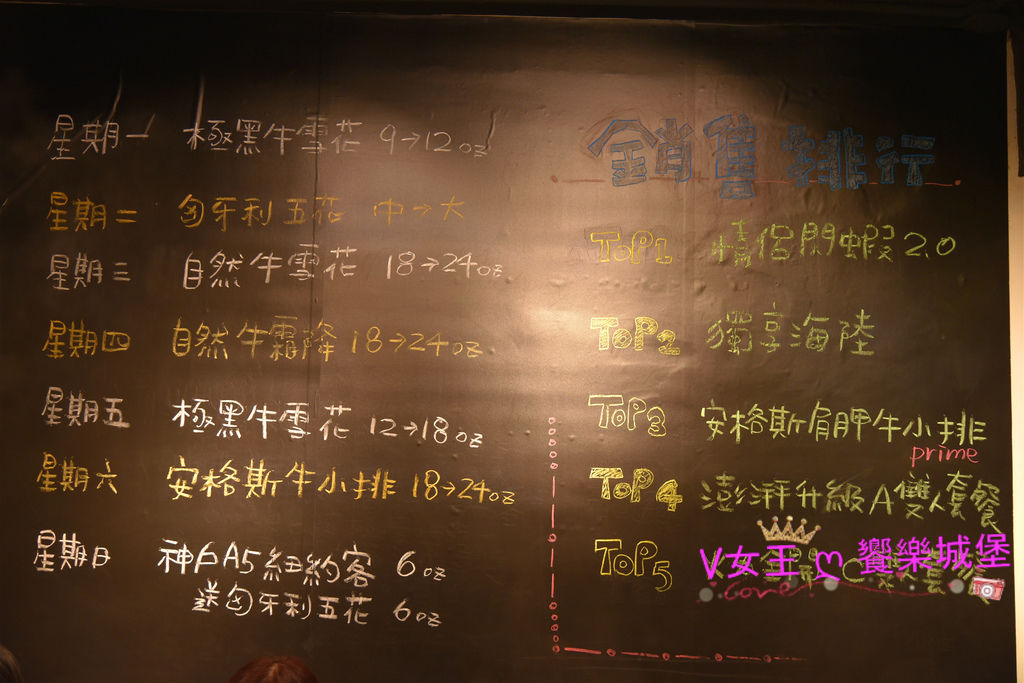 星期一 極黑牛雪花 9→12oz
星期二 匈牙利五花 中→大
星期三 自然牛雪花 18→24oz
星期四 自然牛霜降 18→24oz
星期五 極黑牛雪花 12→18oz
星期六 安格斯牛小排 18→24oz
星期日 神戶A5紐約客 6oz
送匈牙利五花 6oz
銷售排行
TOP1 情侶閃蝦2.0
TOP2 獨享海陸
TOP3 安格斯肩胛牛小排
prime
TOP4 澎湃升級A雙人套餐
TOP5
V女王 饗樂城堡